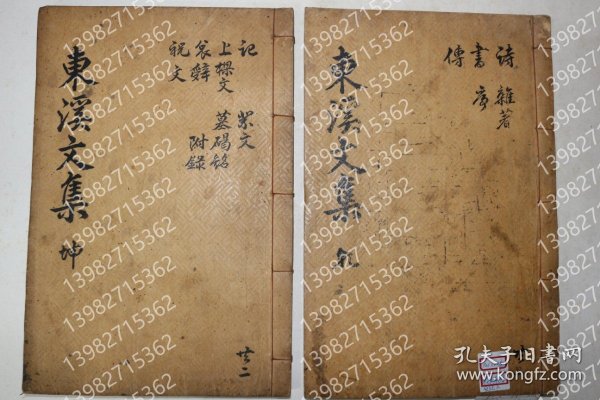 東溪文集 坤
記 祭文
上樑文 墓碣銘
哀辭 附錄
祝文
共二
東溪文集 乾
詩 雜著
書 序
傳
13982715362
孔夫子旧书网
www.kongfz.com